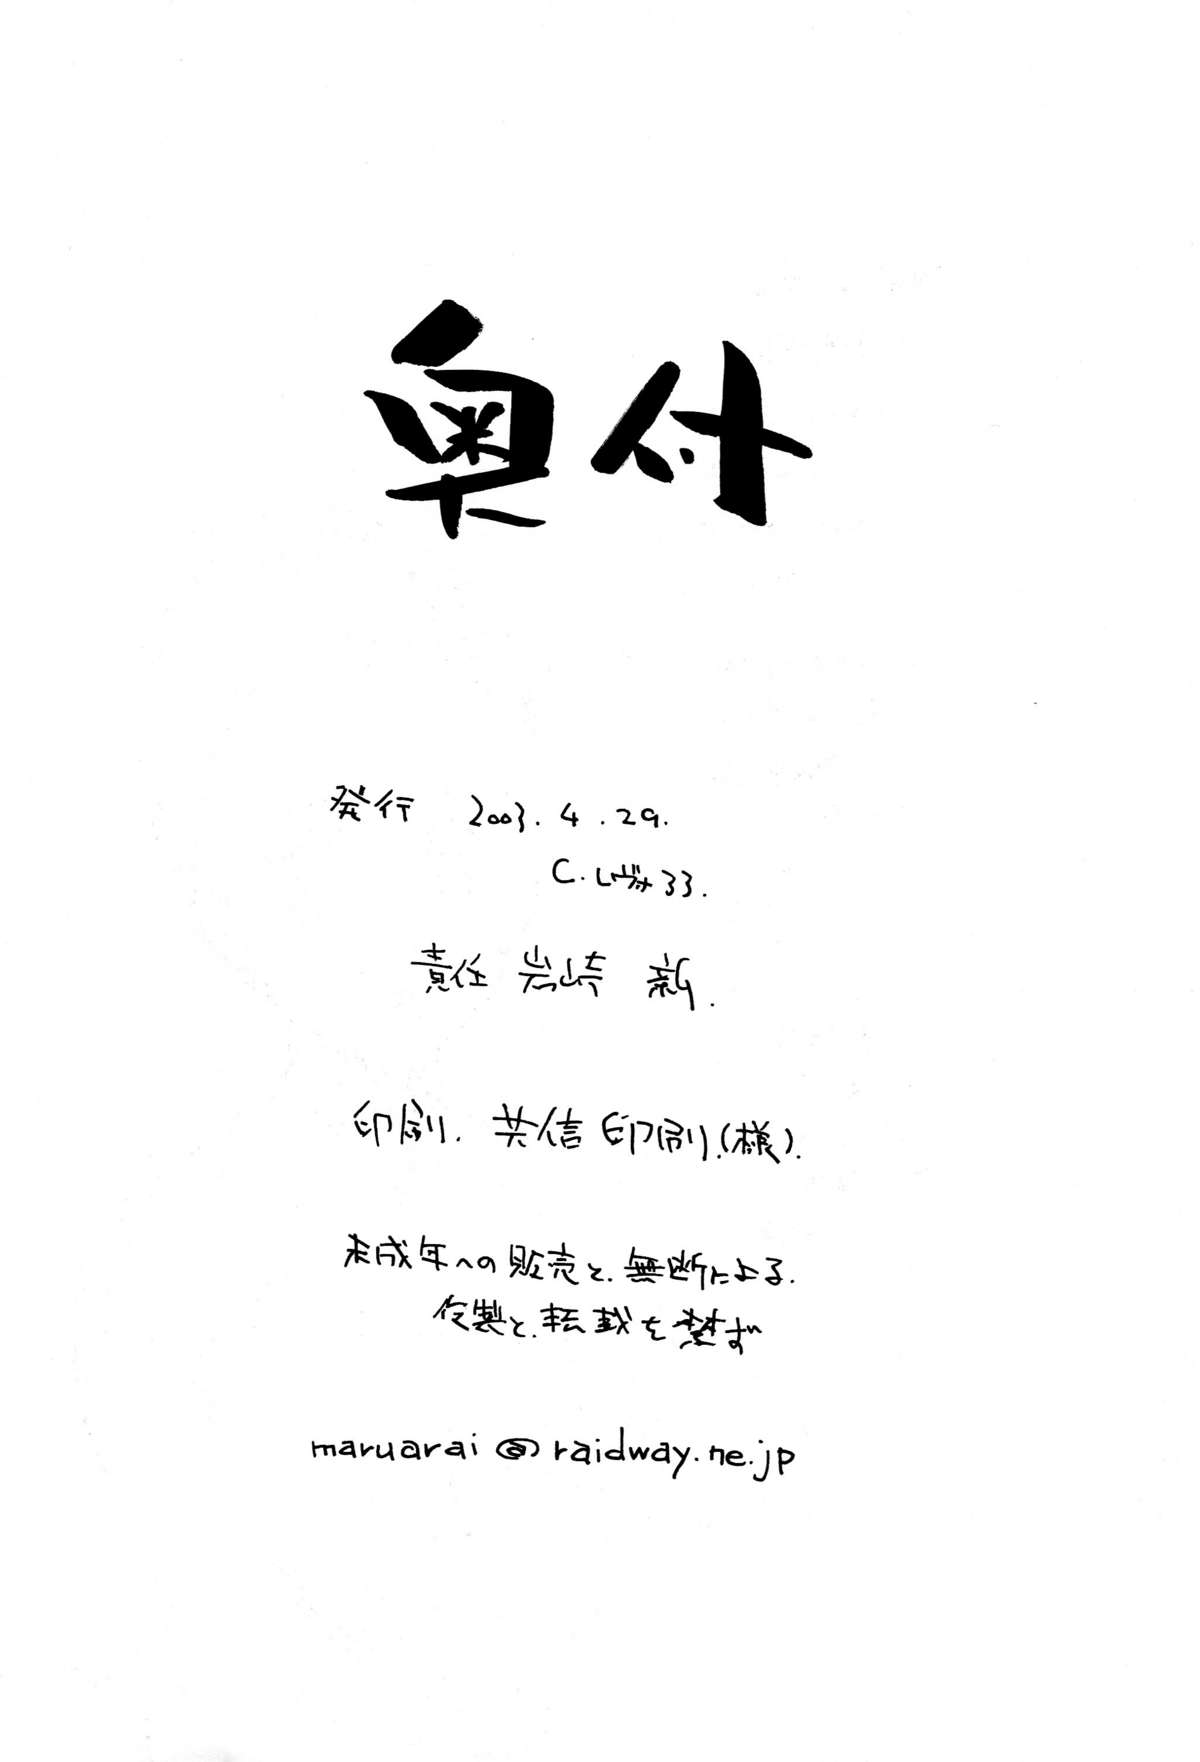 奥付
発行 2003.4.29.
C.レヴォ33.
責任 岩崎 新.
印刷. 共信印刷.(様).
未成年への販売と、無断による.
複製と、転載を禁ず
maruarai@raidway.ne.jp